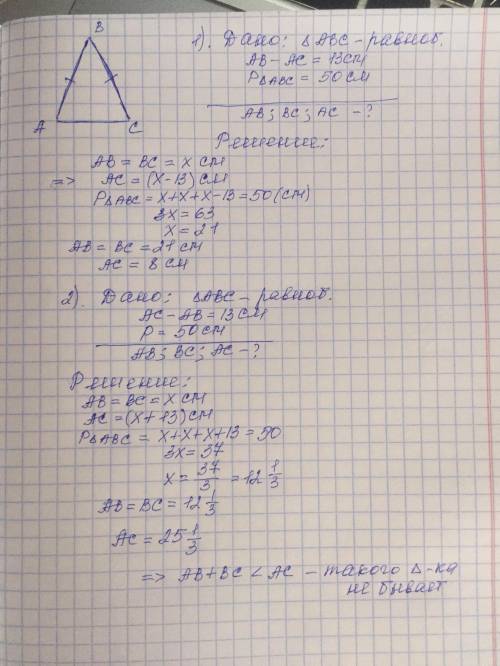 B
A
C
1). Дано: △ABC - равноб.
AB - AC = 13см
P△ABC = 50см
AB; BC; AC - ?
Решение:
AB = BC = x см
=> AC = (x-13) см
P△ABC = x+x+x-13 = 50 (см)
3x = 63
x = 21
AB = BC = 21 см
AC = 8 см
2). Дано: △ABC - равноб.
AC - AB = 13см
P = 50 см
AB; BC; AC - ?
Решение:
AB = BC = x см
AC = (x+13) см
P△ABC = x+x+x+13 = 50
3x = 37
x = 37/3 = 12 1/3
AB = BC = 12 1/3
AC = 25 1/3
=> AB + BC < AC - такого △-ка
не бывает